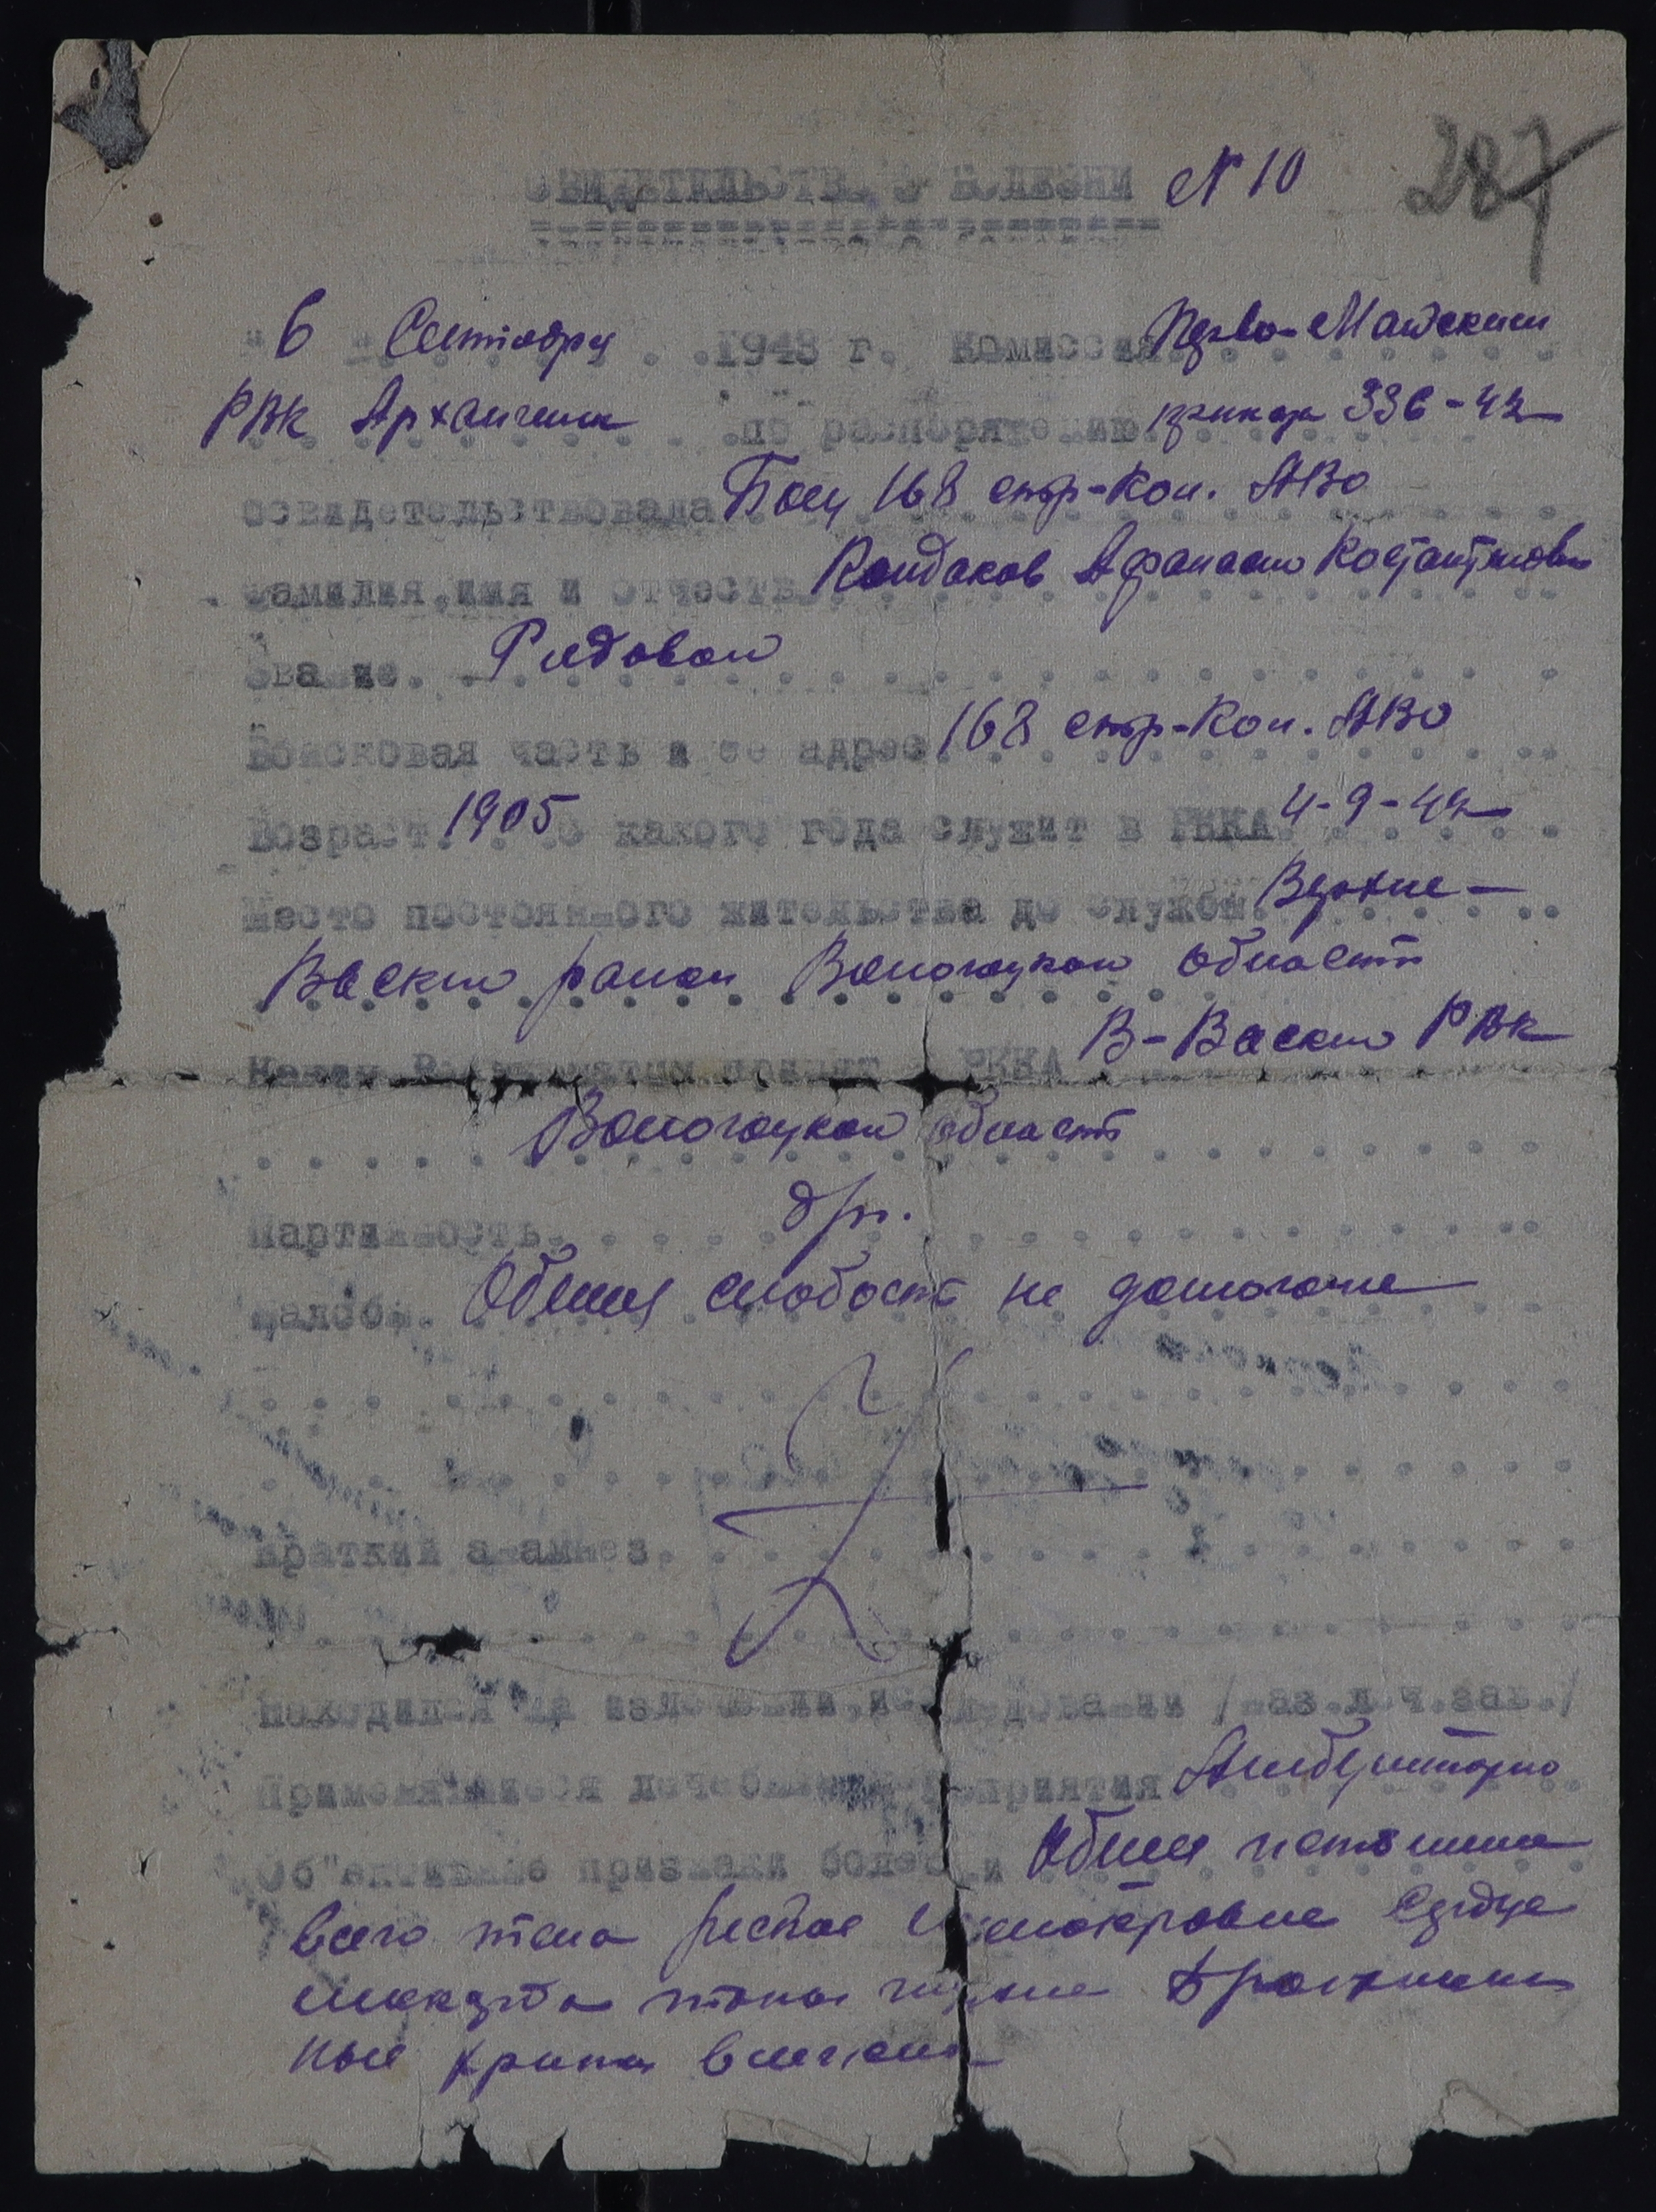 СВИДЕТЕЛЬСТВО О БОЛЕЗНИ № 10 287
"6" Сентября 1943 г. Комиссия Перво-Майским
РВК Архангельск по распоряжению приказ 336-42
освидетельствовала Боец 168 стр-кон. АВО
Фамилия, имя и отчество Кондаков Афанасий Костантинович
Звание. Рядовой
Войсковая часть и ее адрес 168 стр-кон. АВО
Возраст. 1905 С какого года служит в РККА 4-9-42
Место постоянного жительства до службы. Верхне-
Ваский район Вологоцкой область
Каким Военкоматом призват в РККА В-Ваский РВК
Вологоцкой область
Партийность. б/п.
Жалобы. Общая слабость не домогание
Краткий анамнез.
Находился на излечении, исследовании /наз.леч.зав./
Применявшиеся лечебные мероприятия Амбулаторно
Об"ективные признаки болезни Общая
всего тела резкое малокровие Сердце
тона глухие Бронхиаль
ные хрипы в легких